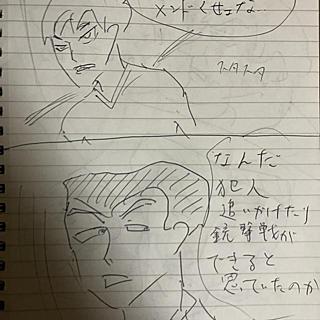 メンドくせェな…
トタトタ
なんだ
犯人
追いかけたり
銃撃戦が
できると
思っていたのか